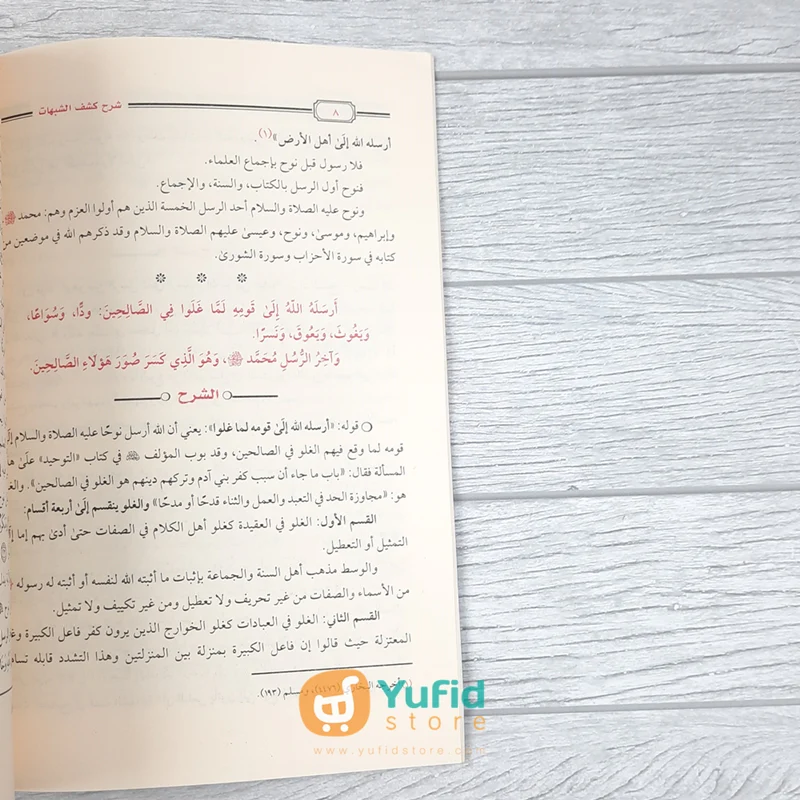 شرح كشف الشبهات
٨
أرسله الله إلىٰ أهل الأرض»(١).
فلا رسول قبل نوح بإجماع العلماء.
فنوح أول الرسل بالكتاب، والسنة، والإجماع.
ونوح عليه الصلاة والسلام أحد الرسل الخمسة الذين هم أولوا العزم وهم: محمد ﷺ،
وإبراهيم، وموسىٰ، ونوح، وعيسىٰ عليهم الصلاة والسلام وقد ذكرهم الله في موضعين من
كتابه في سورة الأحزاب وسورة الشورىٰ.
أَرسَلَهُ اللهُ إِلَىٰ قَومِهِ لَمَّا غَلَوا فِي الصَّالِحِينَ: ودًّا، وَسُوَاعًا،
وَيَغُوثَ، وَيَعُوقَ، وَنَسرًا.
وَآخِرُ الرُّسُلِ مُحَمَّد ﷺ، وَهُوَ الَّذِي كَسَرَ صُوَرَ هَؤلَاءِ الصَّالِحِينَ.
الشرح
قوله: «أرسله الله إلىٰ قومه لما غلوا»: يعني أن الله أرسل نوحًا عليه الصلاة والسلام إلىٰ
قومه لما وقع فيهم الغلو في الصالحين، وقد بوب المؤلف في كتاب «التوحيد» علىٰ
المسألة فقال: «باب ما جاء أن سبب كفر بني آدم وتركهم دينهم هو الغلو في الصالحين».
هو: «مجاوزة الحد في التعبد والعمل والثناء قدحًا أو مدحًا» والغلو ينقسم إلىٰ أربعة أقسام:
القسم الأول: الغلو في العقيدة كغلو أهل الكلام في الصفات حتىٰ أدىٰ بهم إما
التمثيل أو التعطيل.
والوسط مذهب أهل السنة والجماعة بإثبات ما أثبته الله لنفسه أو أثبته له رسوله
من الأسماء والصفات من غير تحريف ولا تعطيل ومن غير تكييف ولا تمثيل.
القسم الثاني: الغلو في العبادات كغلو الخوارج الذين يرون كفر فاعل الكبيرة
المعتزلة حيث قالوا إن فاعل الكبيرة بمنزلة بين المنزلتين وهذا التشدد قابله
البخاري (٤٤٧٦)، ومسلم (١٩٣).
Yufid
store
www.yufidstore.com